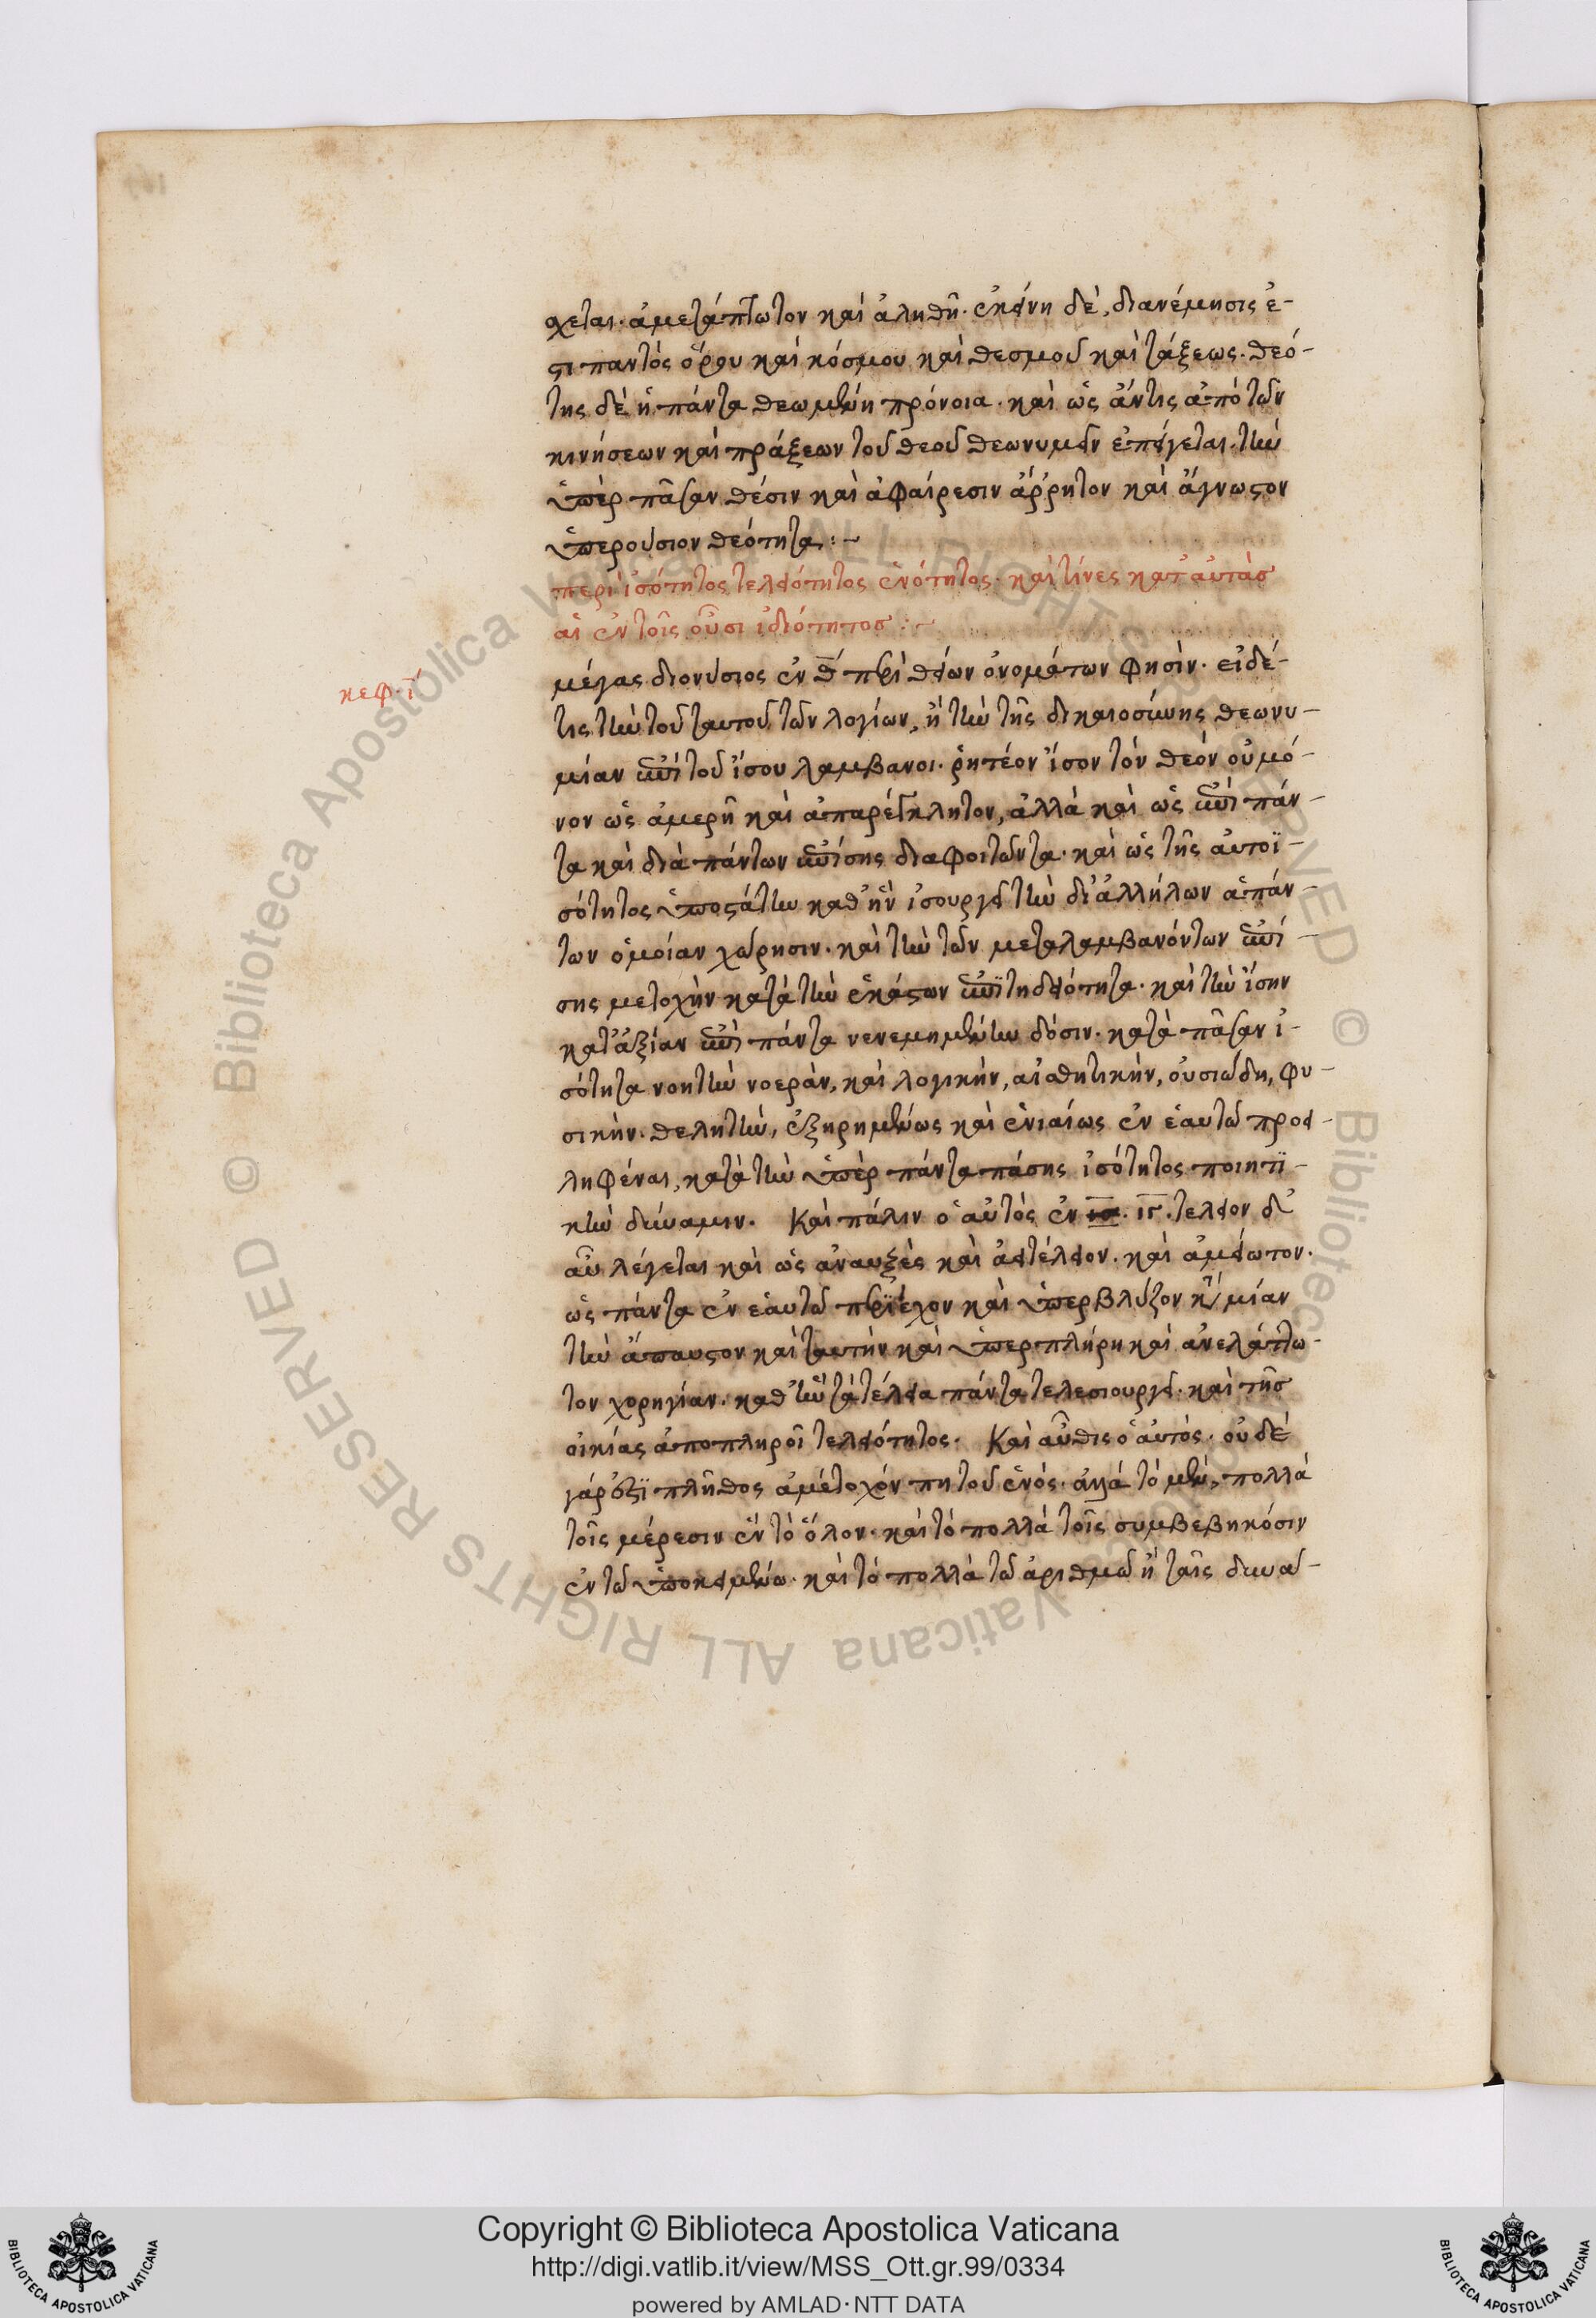 χεται. ἀμετάπτωτον καὶ ἀληθῆ. ἐκείνη δὲ, διανέμησις ἐ-
στι παντὸς ὅρου καὶ κόσμου καὶ θεσμοῦ καὶ τάξεως. θεό-
της δὲ ἡ πάντα θεωμένη πρόνοια. καὶ ὡς ἄν τις ἀπὸ τῶν
κινήσεων καὶ πράξεων τοῦ θεοῦ θεωνυμεῖν ἐπείγεται. τὴν
ὑπὲρ πᾶσαν θέσιν καὶ ἀφαίρεσιν ἄρρητον καὶ ἄγνωστον
ὑπερούσιον θεότητα :-
περὶ ἰσότητος τελειότητος ἑνότητος. καὶ τίνες κατ' αὐτὰσ
αἱ ἐν τοῖς οὖσι ἰδιότητοσ :-
κεφ. ι
μέγας διονύσιος ἐν θ περὶ θείων ὀνομάτων φησὶν. εἰ δέ-
τις τὴν τοῦ ταυτοῦ τῶν λογίων, ἢ τὴν τῆς δικαιοσύνης θεωνυ-
μίαν ἐπὶ τοῦ ἴσου λαμβανοι. ῥητέον ἴσον τὸν θεὸν οὐ μό-
νον ὡς ἀμερῆ καὶ ἀπαρέγκλητον, ἀλλὰ καὶ ὡς ἐπὶ πάν-
τα καὶ διὰ πάντων ἐπίσης διαφοιτῶντα. καὶ ὡς τῆς αὐτοϊ-
σότητος ὑποστάτην καθ' ἣν ἰσουργεῖ τὴν δι' ἀλλήλων ἁπάν-
των ὁμοίαν χώρησιν. καὶ τὴν τῶν μεταλαμβανόντων ἐπί-
σης μετοχὴν κατὰ τὴν ἑκάστων ἐπιτηδειότητα. καὶ τὴν ἴσην
κατ' ἀξίαν ἐπὶ πάντα νενεμημένην δόσιν. κατὰ πᾶσαν ἰ-
σότητα νοητὴν νοερὰν, καὶ λογικὴν, αἰσθητικὴν, οὐσιώδη, φυ-
σικὴν. θελητὴν, ἐξηρημένως καὶ ἑνιαίως ἐν ἑαυτῶ προει-
ληφέναι, κατὰ τὴν ὑπὲρ πάντα πάσης ἰσότητος ποιητι-
κὴν δύναμιν. Καὶ πάλιν ὁ αὐτὸς ἐν ια. ιγ. τέλειον δ'
αὖ λέγεται καὶ ὡς ἀναυξὲς καὶ ἀειτέλειον. καὶ ἀμείωτον.
ὡς πάντα ἐν ἑαυτῶ περιέχον καὶ ὑπερβλύζον κατὰ μίαν
τὴν ἄπαυστον καὶ ταυτὴν καὶ ὑπερπλήρη καὶ ἀνελάττω-
τον χορηγίαν. καθ' ἣν τὰ τέλεια πάντα τελεσιουργεῖ. καὶ τῆσ
οἰκίας ἀποπληροῖ τελειότητος. Καὶ αὖθις ὁ αὐτός. οὐδὲ
γάρ ἐστι πλῆθος ἀμέτοχόν πη τοῦ ἑνός. ἀλλὰ τὸ μὲν, πολλὰ
τοῖς μέρεσιν ἓν τὸ ὅλον. καὶ τὸ πολλὰ τοῖς συμβεβηκόσιν
ἓν τῶ ὑποκειμένω. καὶ τὸ πολλὰ τῶ ἀριθμῶ ἢ ταῖς δυνα-
© Biblioteca Apostolica Vaticana ALL RIGHTS RESERVED © Biblioteca Apostolica Vaticana ALL RIGHTS RESERVED
BIBLIOTECA APOSTOLICA VATICANA
Copyright © Biblioteca Apostolica Vaticana
http://digi.vatlib.it/view/MSS_Ott.gr.99/0334
powered by AMLAD·NTT DATA
BIBLIOTECA APOSTOLICA VATICANA